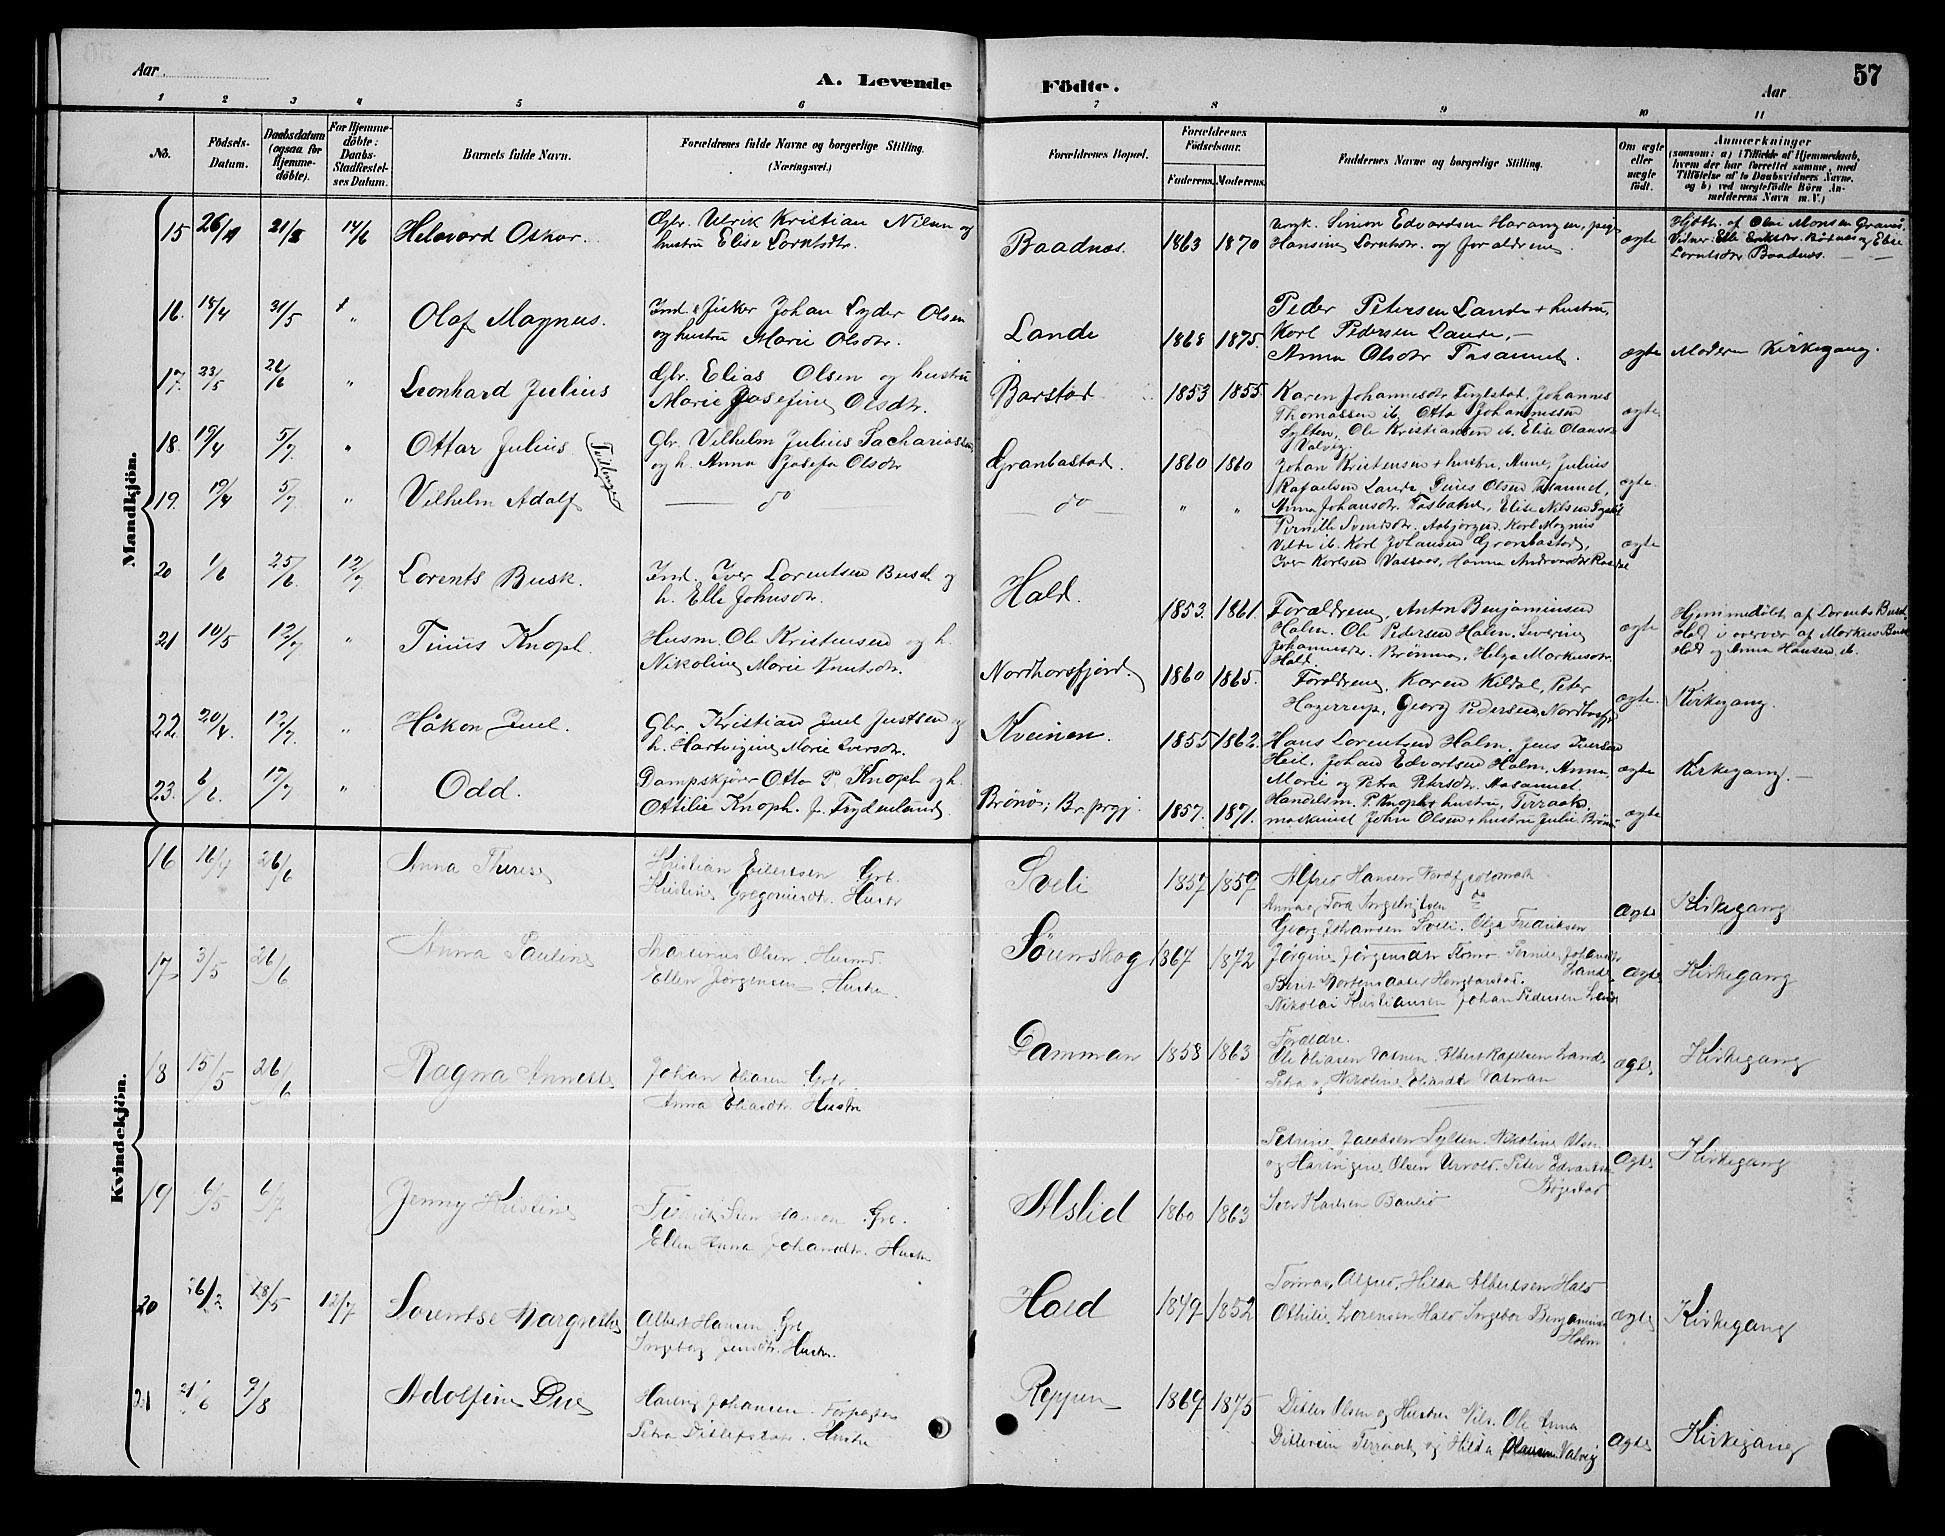 Aar
A. Levende Födte.
Aar
57
1 2 3 4 5 6 7 8 9 10 11
No.
Födsels-Datum.
Daabsdatum (ogsaa for Hjemme-döbte).
For Hjemme-döbte: Daabs-Stadfæstel-ses Datum.
Barnets fulde Navn.
Forældrenes fulde Navne og borgerlige Stilling. (Næringsvei.)
Forældrenes Bopæl.
Forældrenes Födselsaar.
Faderens. Moderens.
Faddernes Navne og borgerlige Stilling.
Om ægte eller uægte födt.
Anmærkninger
(saasom: a) i Tilfælde af Hjemmedaab,
hvem der har forrettet samme, med
Tilföielse af to Daabsvidners Navne.
og b) ved uægtefödte Börn An-
melderens Navn m. V.)
Mandkjön.
15 14/6 Helavard Oskar.
Gbr. Ulrik Kristian Nilsen og
hustru Elise Lorntsdtr.
Baadnæs. 1863 1870
Simon Edvardsen Harangen, pige
Hansine Lorntsdtr. og forældrene
ægte
Hjdbt. af Olai Monsen Grannæs,
Vidner: Elle Eriksdtr. Bødnæs og Elise
Lorntsdtr Baadnæs.
16. 18/4 31/5 " Olaf Magnus.
Ind. & fisker Johan Lyder Olsen
og hustru Marie Olsdtr.
Lande 1868 1875.
Peder Petersen Lande + hustru,
Karl Pedersen Lande, –
Anna Olsdtr
ægte Moderen Kirkegang.
17. 23/5 26/6 " Leonhard Julius
Gbr. Elias Olsen og hustru
Marie Josefine Olsdtr.
Barstad 1853 1855.
Karen Johannesdtr Tingstad, Johannes
Thomassen ib. Otto Johannessen
Sylten, Ole Kristiansen ib. Elise Olausdtr
Valvig.
ægte
18. 19/4 5/7. " Ottar Julius
Tvillinger
Gbr. Vilhelm Julius Sachariassen
og h. Anna Josefa Olsdtr
Granbastad. 1860 1860
Johan Kristensen + hustru, Anne, Julius
Rafaelsen Lande,
ægte.
19. 19/4 5/7. " Vilhelm Adolf
— do — do — " "
Anna Johansdtr. Elise Nilsen
Pernille Svendsdtr. Aabjørgen. Karl Magnus
Velde ib. Karl Johansen Granbastad,
Iver Karlsen Hanna
ægte
20 1/6 25/6. 12/7 Lorents Busk.
Ind. Iver Lorentsen Busch og
h. Elle Johnsdtr.
Hald. 1853. 1861.
Forældrene, Anton Benjaminsen
Holm. Ole Pedersen Holm. Severine
Johannesdtr. Brønmo, Helga Markusdtr.
Hald
ægte
Hjemmedøbt af Lorents Busch
Hald i overvær af Markus Busch
Hald og Anna Hansen ib.
21 10/5 12/7 " Tinus Knoph.
Husm. Ole Kristensen og h.
Nikoline Marie Knutsdtr.
Nordhorsfjord. 1860 1865.
Forældrene, Karen Kildal, Peter
Hagerup, Georg Pedersen,
ægte. Kirkegang.
22 20/4. 12/7. " Håkon Juel.
Gbr. Kristian Juel Justsen og
h. Hartvigine Marie Iversdtr.
Kveinen. 1855 1862.
Hans Lorentsen Holm, Jens Iversen
Heil, Johan Edvartsen Holm, Anna,
Marie og Petra Petersdtr.
ægte Kirkegang. –
23. 6/2. 17/7 " Odd.
Dampskjører Otto P. Knoph og h.
Ottilie Knoph. f. Frydenlund
Brønø, Br. prgj. 1857. 1871.
Handelsm. P. Knoph + hustru, Terraak,
maskinist John Olsen + hustru Julie Brønø
ægte
Kvindekjön.
16 16/4 26/6 Anna Therese
Kristian Eilertsen Grb.
Kristine Gregoriusdtr. Hustr
Sveli 1857 1859
Alfred Hansen
Anna og Tora Ingebrigtsen do
Georg Johansen Sveli. Olga Fredriksen
Ægte Kirkegang
17 3/5 26/6 Anna Pauline
Martinus Olsen. Husmd
Ellen Jørgensen. Hustr.
Sørenskog 1867 1872
Jørgine Jørgensdtr
Lande
Berit Mortensdatter
Nikolai Kristiansen Johan Pedersen Lande
Ægte Kirkegang
18 15/5 26/6 Ragna Annette
Johan Eliasen. Grbr.
Anna Eliasdtr. Hustr
Damman 1858 1863
Forældre.
Ole Eliasen Albert Lande
Petra og Nikoline Eliasdtr
ægte Kirkegang
19 6/5 6/7 Jenny Kristine
Hansen Grb.
Ellen Anna Johansdtr. Hustr
Alslid 1860 1863
Petrine Jacobsen Sylten. Nikoline Olsen
og Hartvigine Olsen Urvold. Peter Edvardsen
Bøgestad
Iver Karlsen
Ægte Kirkegang
20 26/2 28/5 12/7 Lorentse Margrethe
Albert Hansen. Grb.
Ingeborg Jensdtr. Hustr.
Hald 1849 1852
Tomas, Alfred, Hilda Albertsen Hald
Othilie Lorensen Hald Ingebor Benjaminsen
Holm
ægte Kirkegang
21 21/6 9/8 Adolfine Due
Hartvig Johansen. Forpagter
Petra Ditlefsdatr. Hustr
Reppen 1869 1875
Ditlev Olsen og Hustru Nils. Ole Anna
Ditlevsen Terraak og Hilda Valvig
Ægte Kirkegang